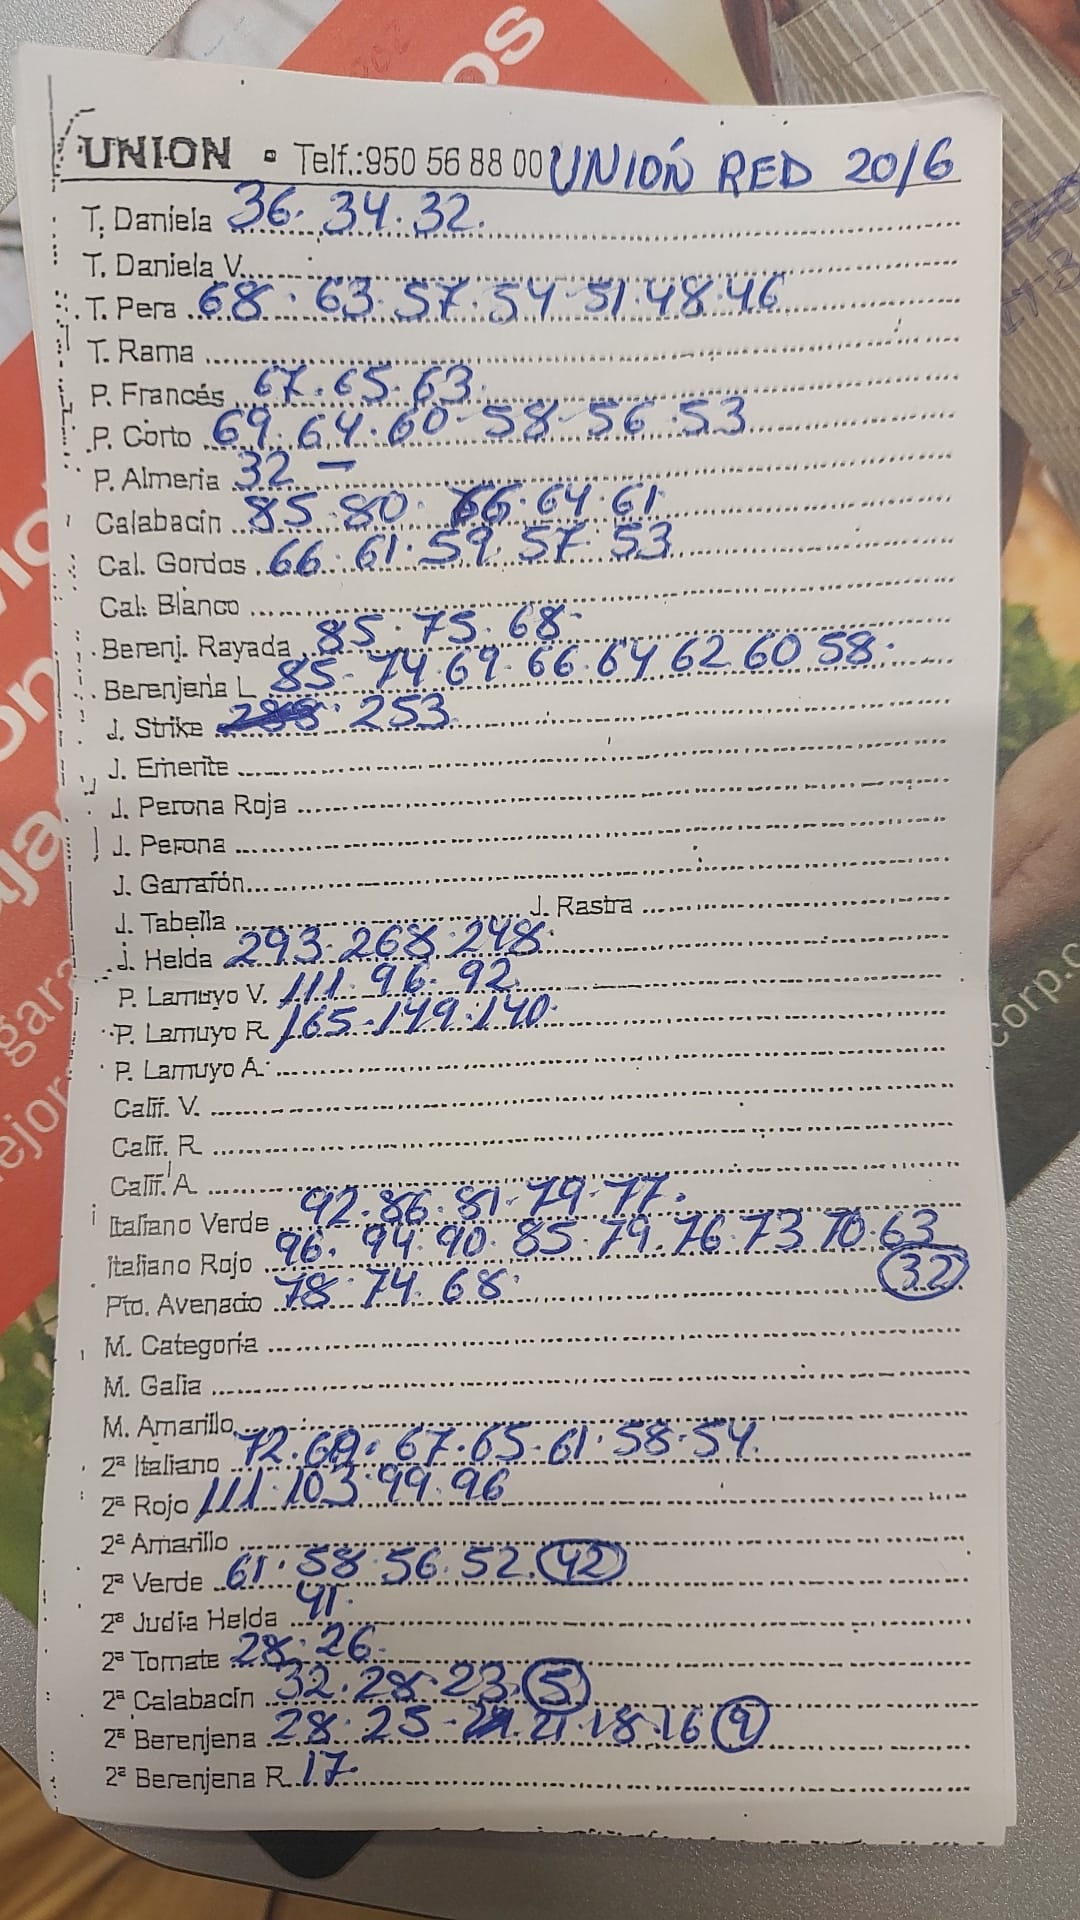 UNION • Telf.:950 56 88 00 UNIÓN RED 20/6
T. Daniela 36. 34. 32.
T. Daniela V.
T. Pera 68. 63. 57. 54 - 51. 48. 46
T. Rama
P. Francés 67. 65. 63.
P. Corto 69. 64. 60 - 58 - 56 53
P. Almeria 32 -
Calabacín 85. 80. 66. 64. 61
Cal. Gordos 66. 61. 59. 57. 53
Cal. Blanco
Berenj. Rayada 85. 75. 68.
Berenjena L 85 - 74. 69 - 66. 64 62 60 58.
J. Strike 253
J. Emerite
J. Perona Roja
J. Perona
J. Garrafón
J. Tabella J. Rastra
J. Helda 293. 268. 248.
P. Lamuyo V. 111. 96. 92
P. Lamuyo R. 165 - 149. 140.
P. Lamuyo A.
Calif. V.
Calif. R
Calif. A
Italiano Verde 92. 86. 81 - 79. 77.
Italiano Rojo 96. 94. 90. 85. 79. 76. 73 70. 63
Pto. Avenado 78. 74. 68. 32
M. Categoria
M. Galia
M. Amarillo
2ª Italiano 72. 69. 67. 65. 61. 58. 54.
2ª Rojo 111. 103. 99. 96
2ª Amarillo
2ª Verde 61. 58. 56. 52. 42
2ª Judía Helda 41.
2ª Tomate 28. 26.
2ª Calabacín 32. 28. 23. 5
2ª Berenjena 28. 25 - 21. 18. 16 9
2ª Berenjena R. 17.
os
corp.c